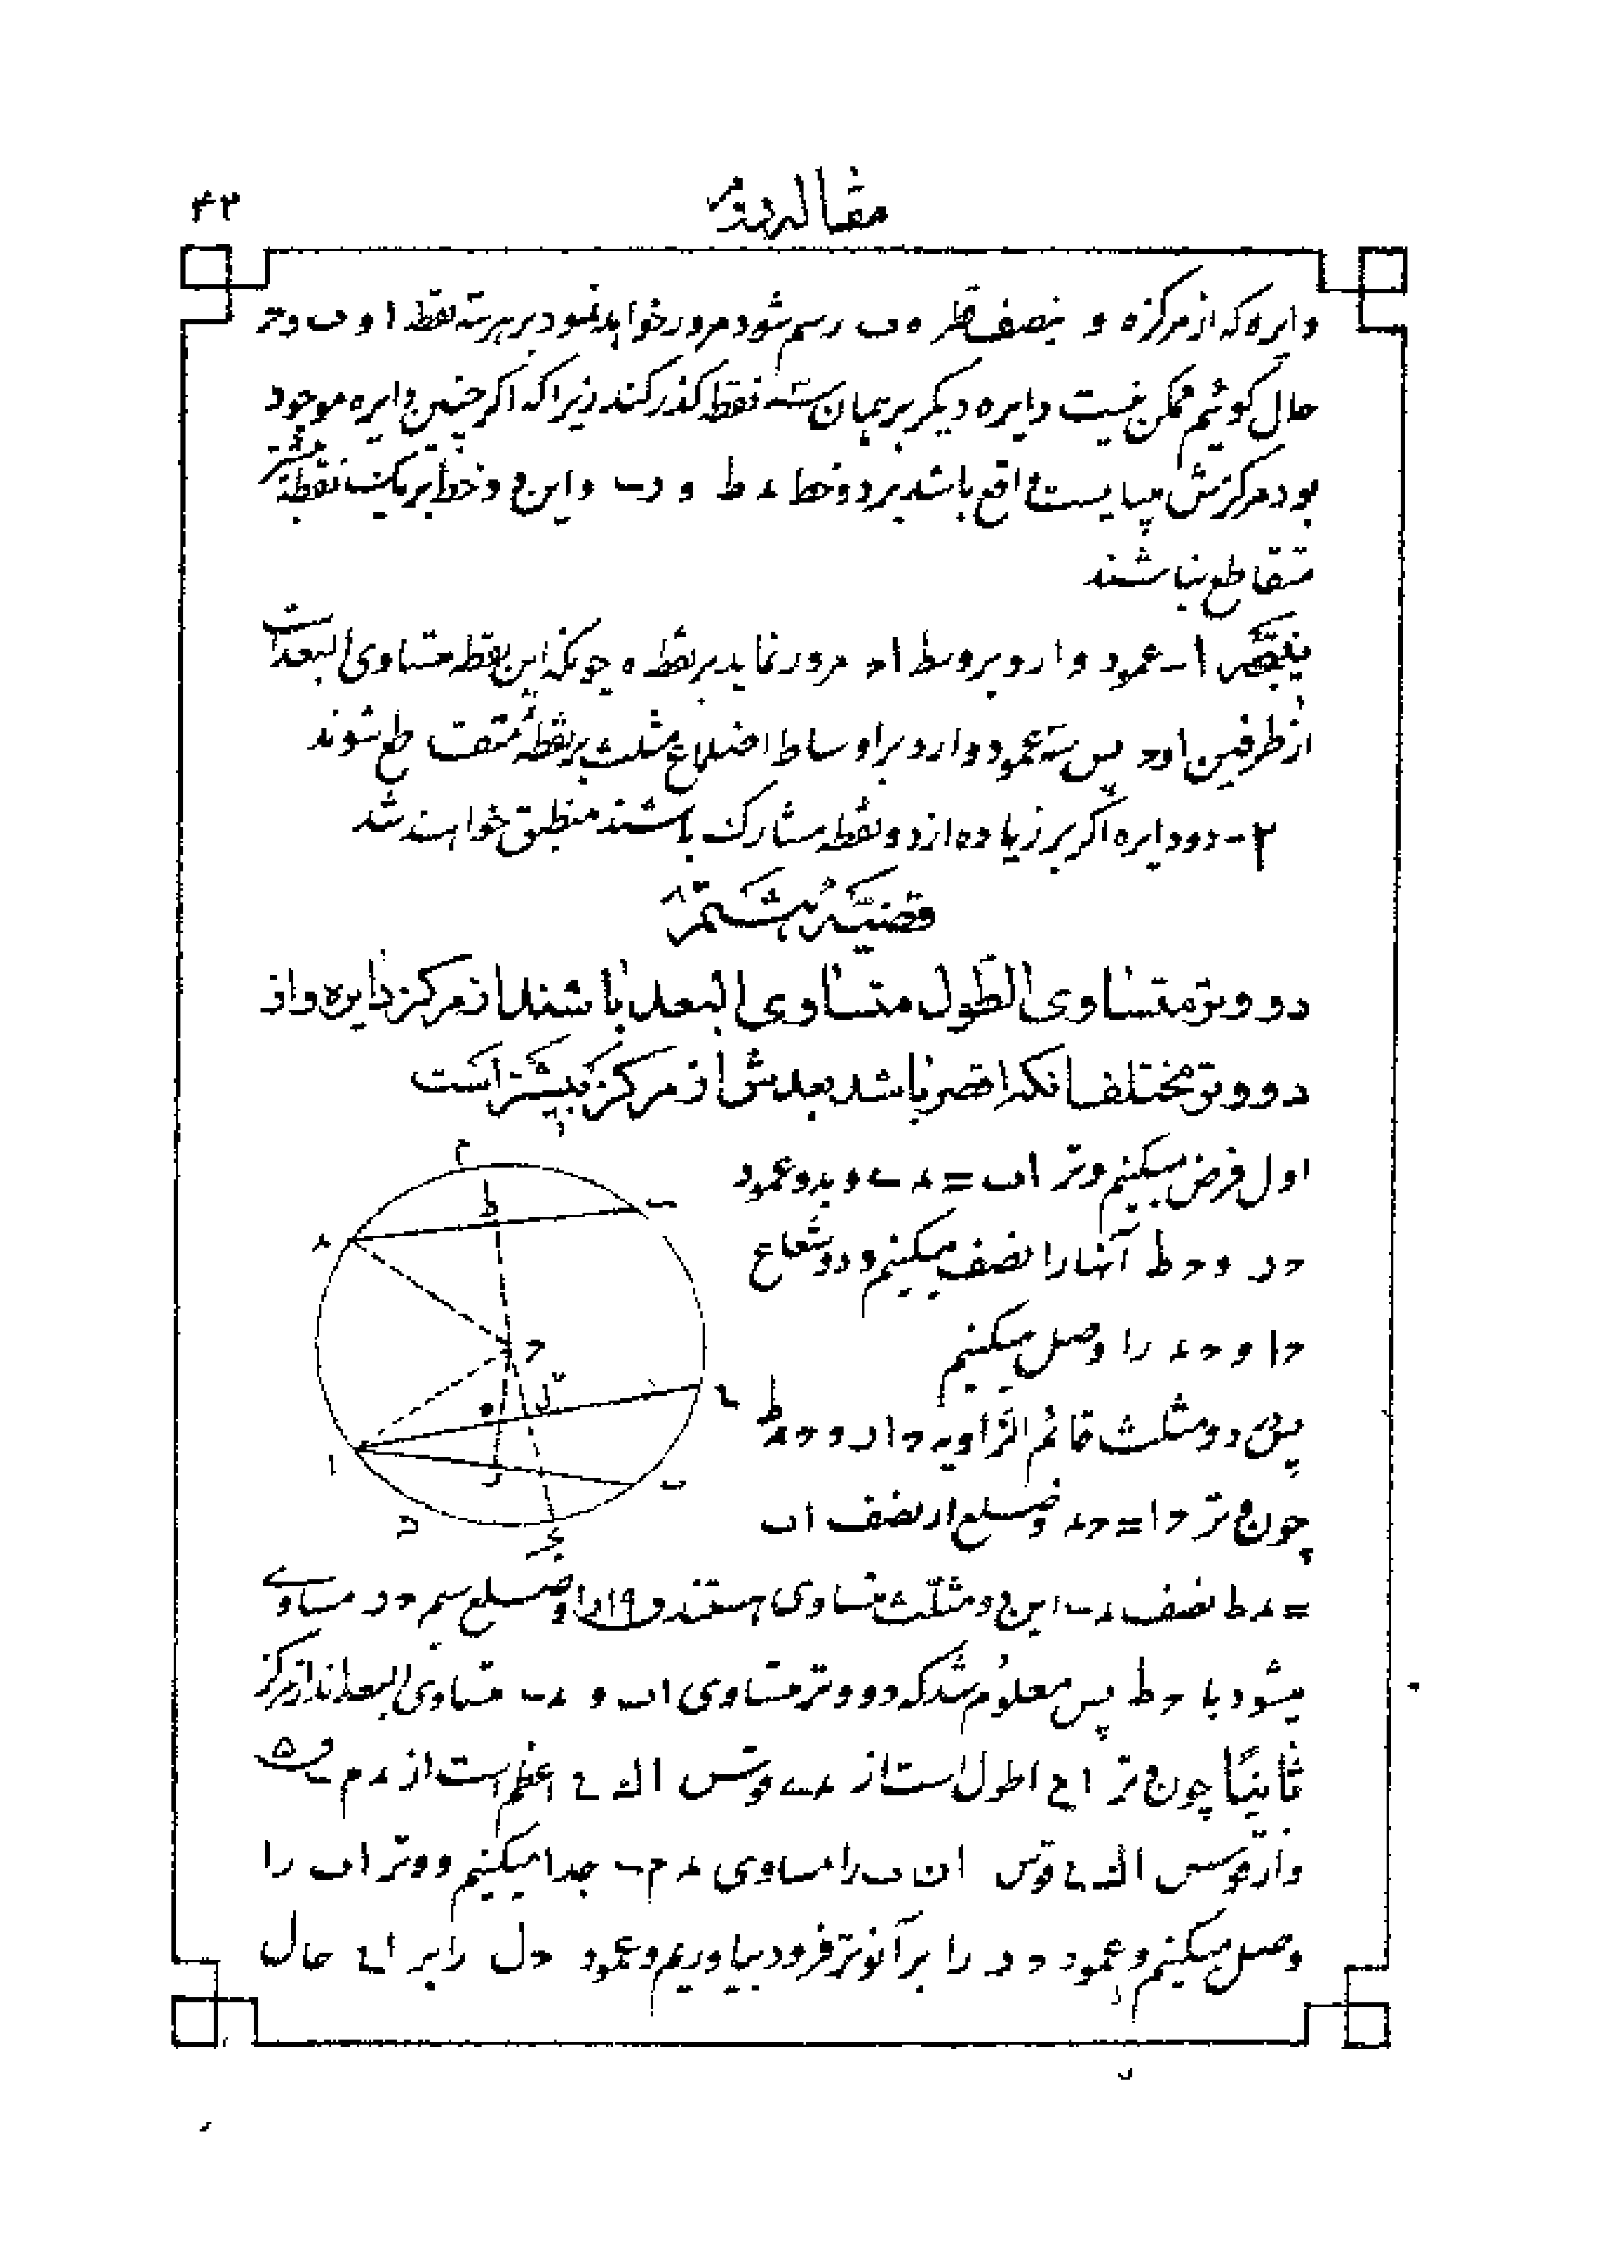 ۴۳
مقاله دویم
دایره که از مرکز ه و بنصف قطر ه ب رسم شود مرور خواهد نمود بر هر سه نقطه ا و ب و ح
حال گوئیم ممکن نیست دایره دیگر بر همان سه نقطه گذر کند زیرا که اگر چنین دایره موجود
بود مرکزش میبایست واقع باشد بر دو خط ء ط و د ب و این دو خط بر یک نقطه بیشتر
متقاطع نباشند
نتیجه ۱ - عمود وارد بر وسط ا ح مرور نماید بر نقطه ه چونکه این نقطه متساوی البعد است
از طرفین ا و ح پس سه عمود وارد بر اوساط اضلاع مثلث بر نقطه متقاطع شوند
۲ - دو دایره اگر بر زیاده از دو نقطه مشارک باشند منطبق خواهند شد
قضیه هشتم
دو وتر متساوی الطول متساوی البعد باشند از مرکز دایره و از
دو وتر مختلف آنکه اقصر باشد بعدش از مرکز بیشتر است
اول فرض میکنیم وتر ا ب = ء ے و بدو عمود
ح ر و ح ط آنها را نصف میکنیم و دو شعاع
ح ا و ح ء را وصل میکنیم
پس دو مثلث قائم الزاویه ح ا ر و ح ء ط
چون وتر ح ا = ح ء و ضلع ا ر نصف ا ب
= ء ط نصف ء ے این دو مثلث متساوی هستند و ضلع سیم ح ر مساوی
میشود با ح ط پس معلوم شد که دو وتر متساوی ا ب و ء ے متساوی البعدند از مرکز
ثانیا چون وتر ا ع اطول است از ء ے قوس ا ک ع اعظم است از ء م ے ق ۵
و از قوس ا ک ع قوس ا ن ب را مساوی ء م ے جدا میکنیم و وتر ا ب را
وصل میکنیم و عمود ح ر را بر آنوتر فرود بیاوریم و عمود ح ل را بر ا ع حال